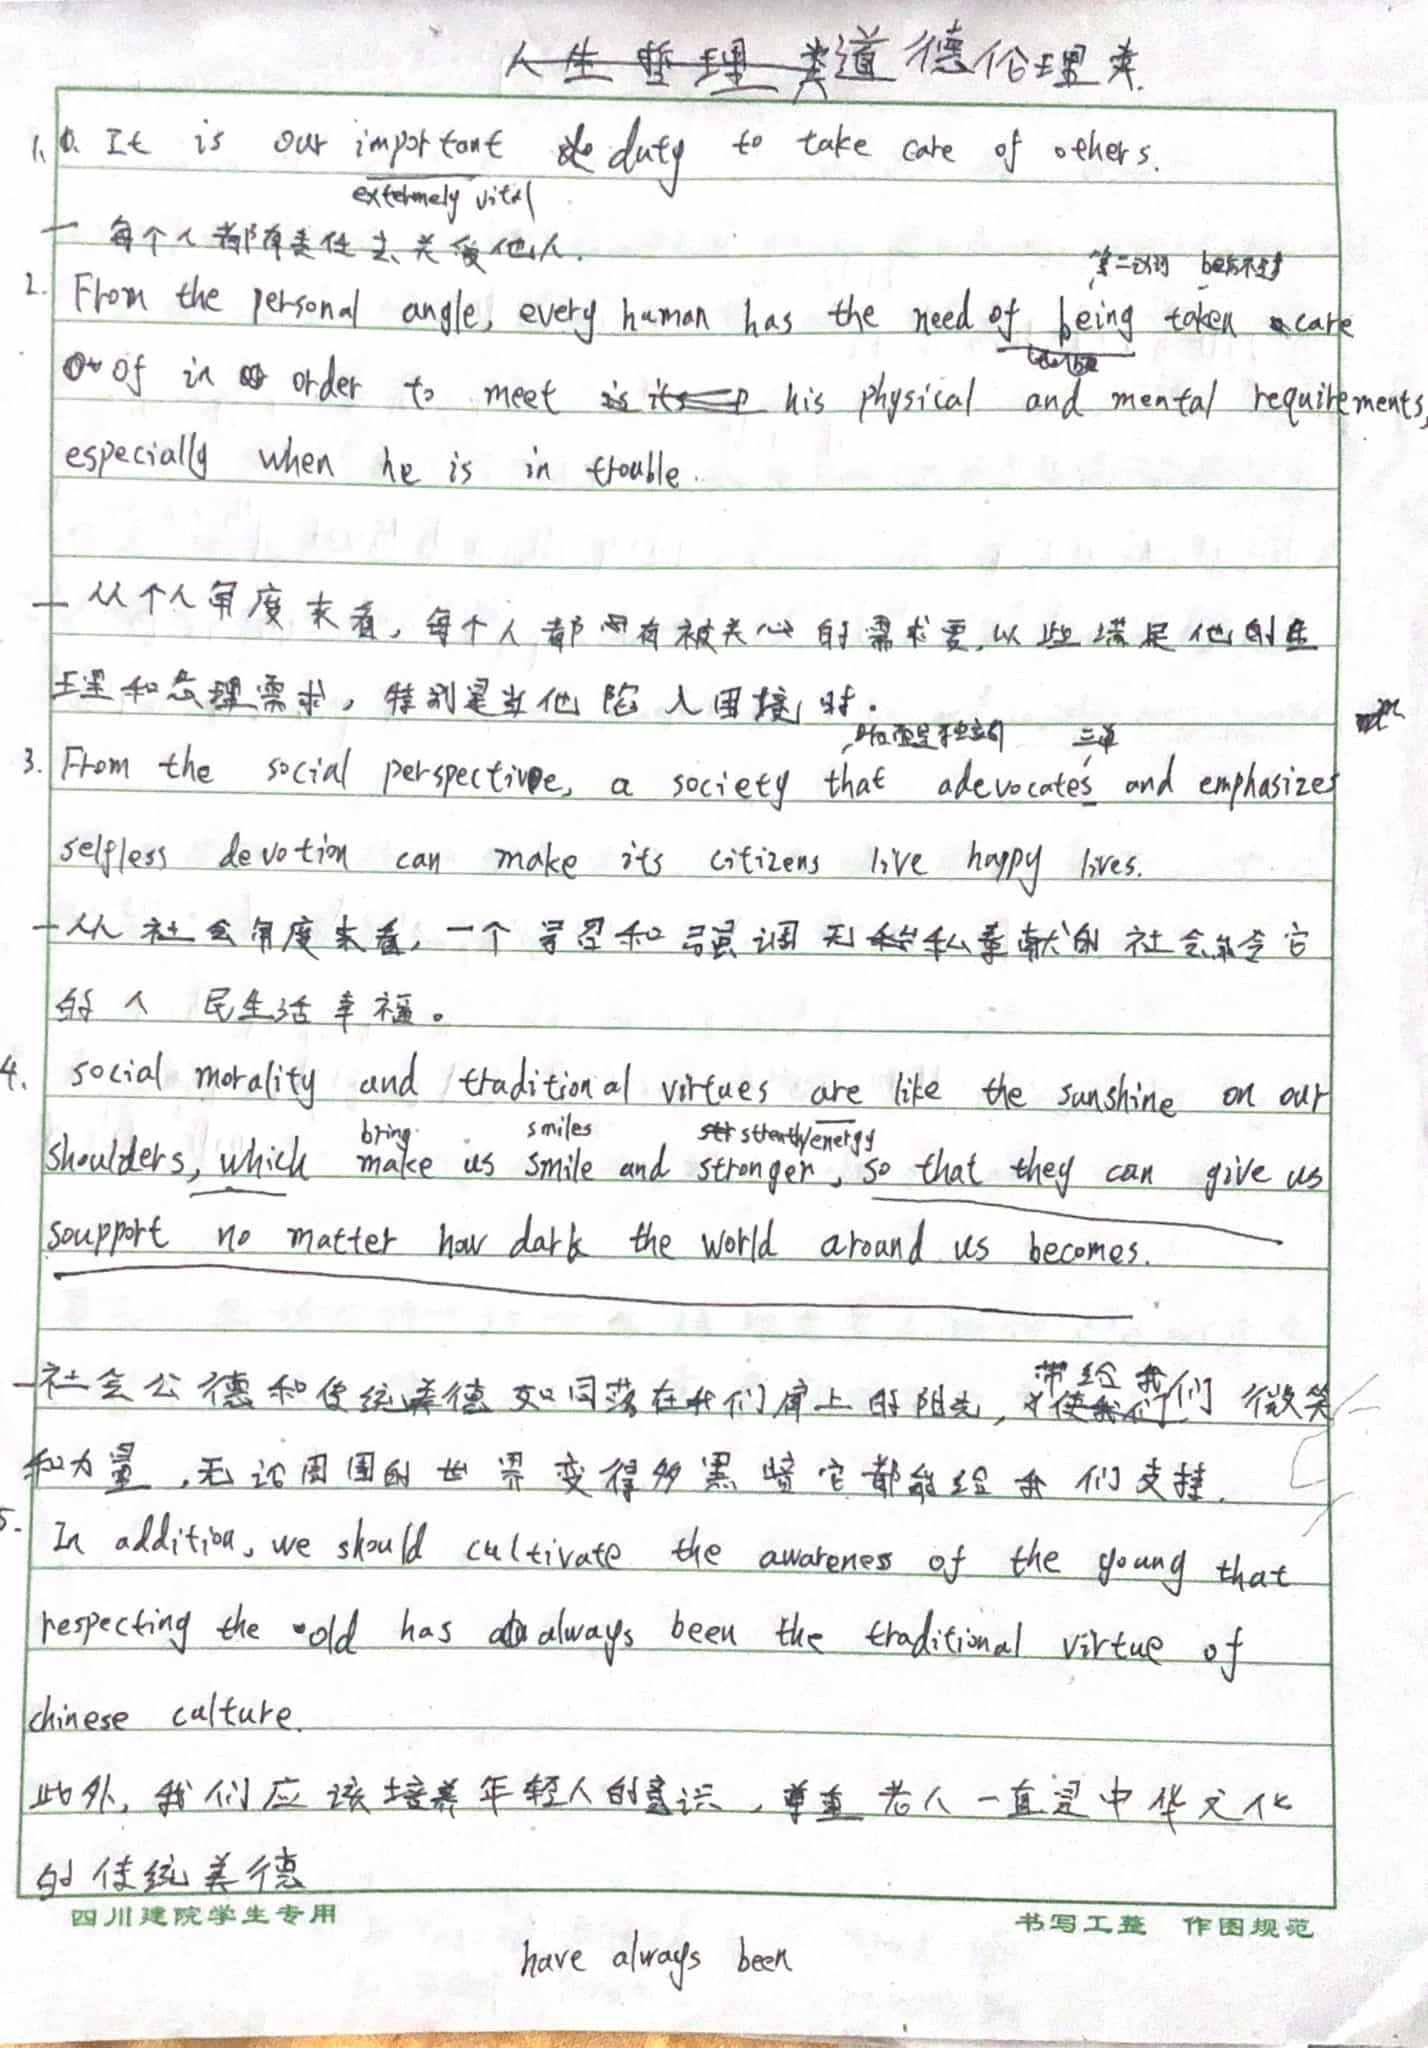 人生哲理类道德伦理类.
1. It is our important duty to take care of others.
extermely vital
一 每个人都有责任去关爱他人.
2. From the personal angle, every human has the need of being taken care
of in order to meet his physical and mental requirements,
especially when he is in trouble.
一 从个人角度来看, 每个人都有被关心的需求要, 以些满足他的生
理和心理需求, 特别是当他陷入困境时.
三单
3. From the social perspective, a society that adevocates and emphasizes
selfless devotion can make its citizens live happy lives.
一从社会角度来看, 一个 和强调无私奉献的社会能令它
的人民生活幸福。
4. social morality and traditional virtues are like the sunshine on our
bring smiles energy
shoulders, which make us smile and stronger, so that they can give us
soupport no matter how dark the world around us becomes.
带给我
一社会公德和传统美德如同落在我们肩上的阳光, 使我们们微笑
和力量, 无论周围的世界变得多黑暗它都能给我们支持.
5. In addition, we should cultivate the awareness of the young that
respecting the old has always been the traditional virtue of
chinese culture.
此外, 我们应该培养年轻人的意识, 尊重老人一直是中华文化
的传统美德
四川建院学生专用 书写工整 作图规范
have always been